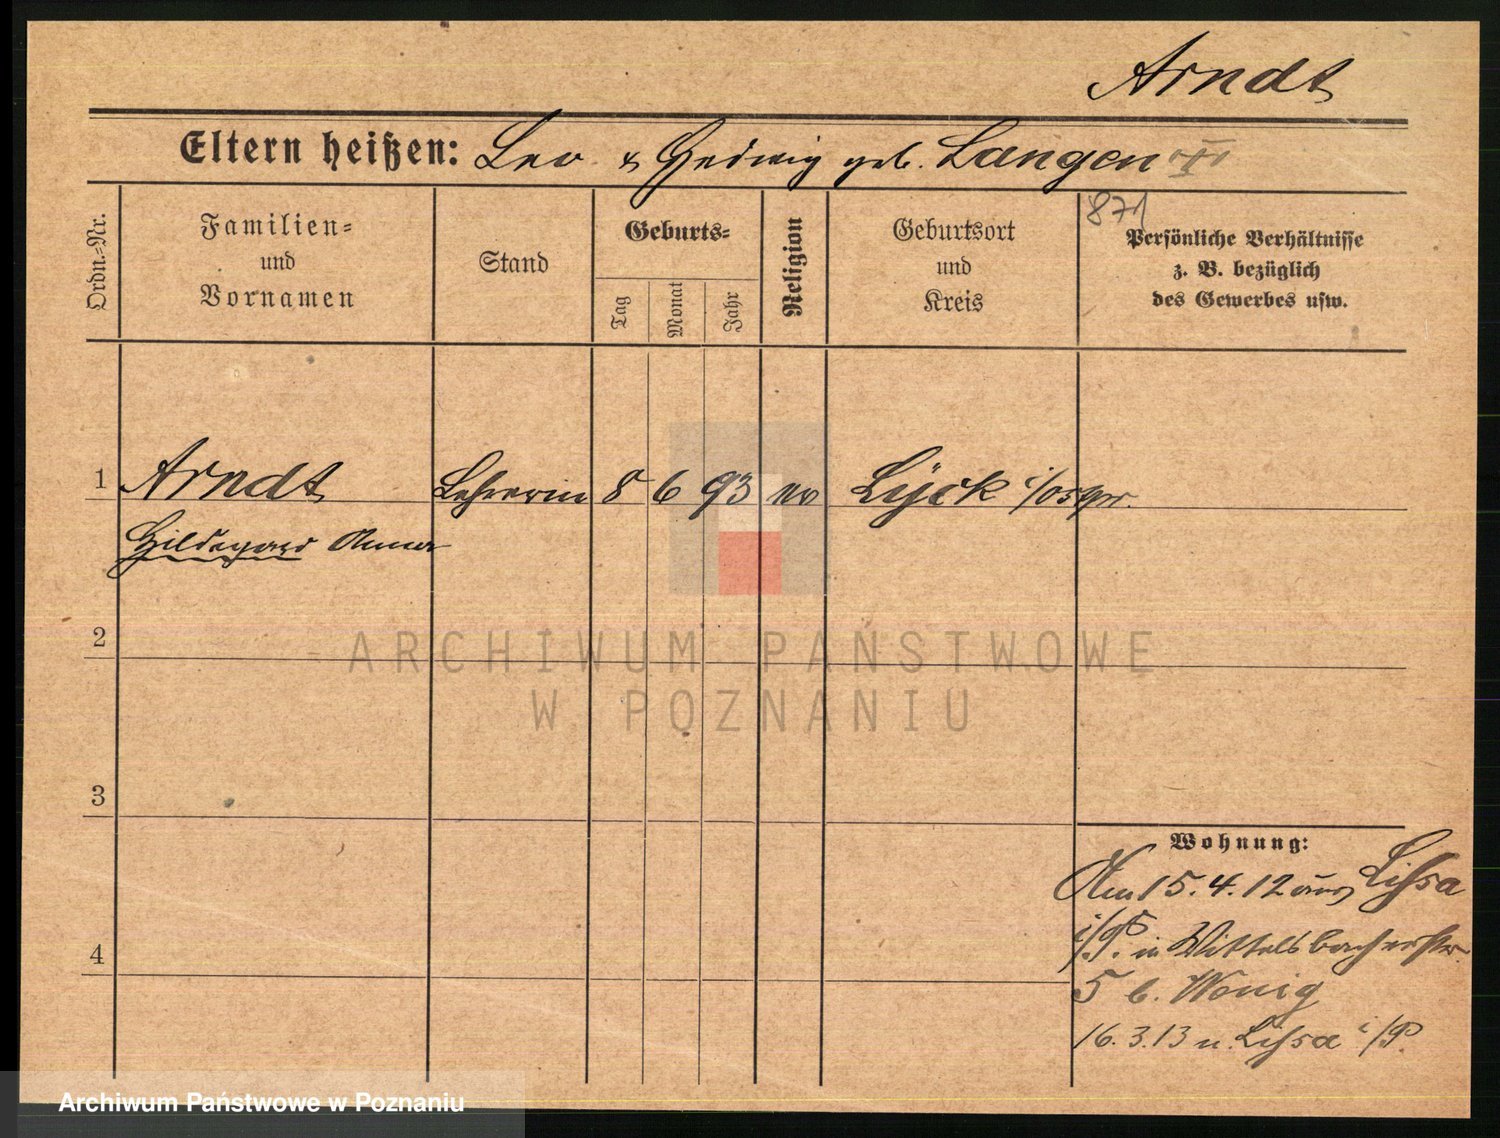 Arndt
Eltern heißen: Leo & Hedwig geb. Langen
871
Ordn.-Nr.
Familien-
und
Vornamen
Stand
Geburts-
Tag
Monat
Jahr
Religion
Geburtsort
und
Kreis
Persönliche Verhältnisse
z. B. bezüglich
des Gewerbes usw.
1 Arndt Lehrerin 8 6 93 ev Lyck i/Ostpr.
Hildegard Anna
2
ARCHIWUM PAŃSTWOWE
W POZNANIU
3
Wohnung:
Am 15.4.12 aus Lissa
i/P. in Wittelsbacherstr.
4
5 b. Wonig
16.3.13 n. Lissa i/P.
Archiwum Państwowe w Poznaniu